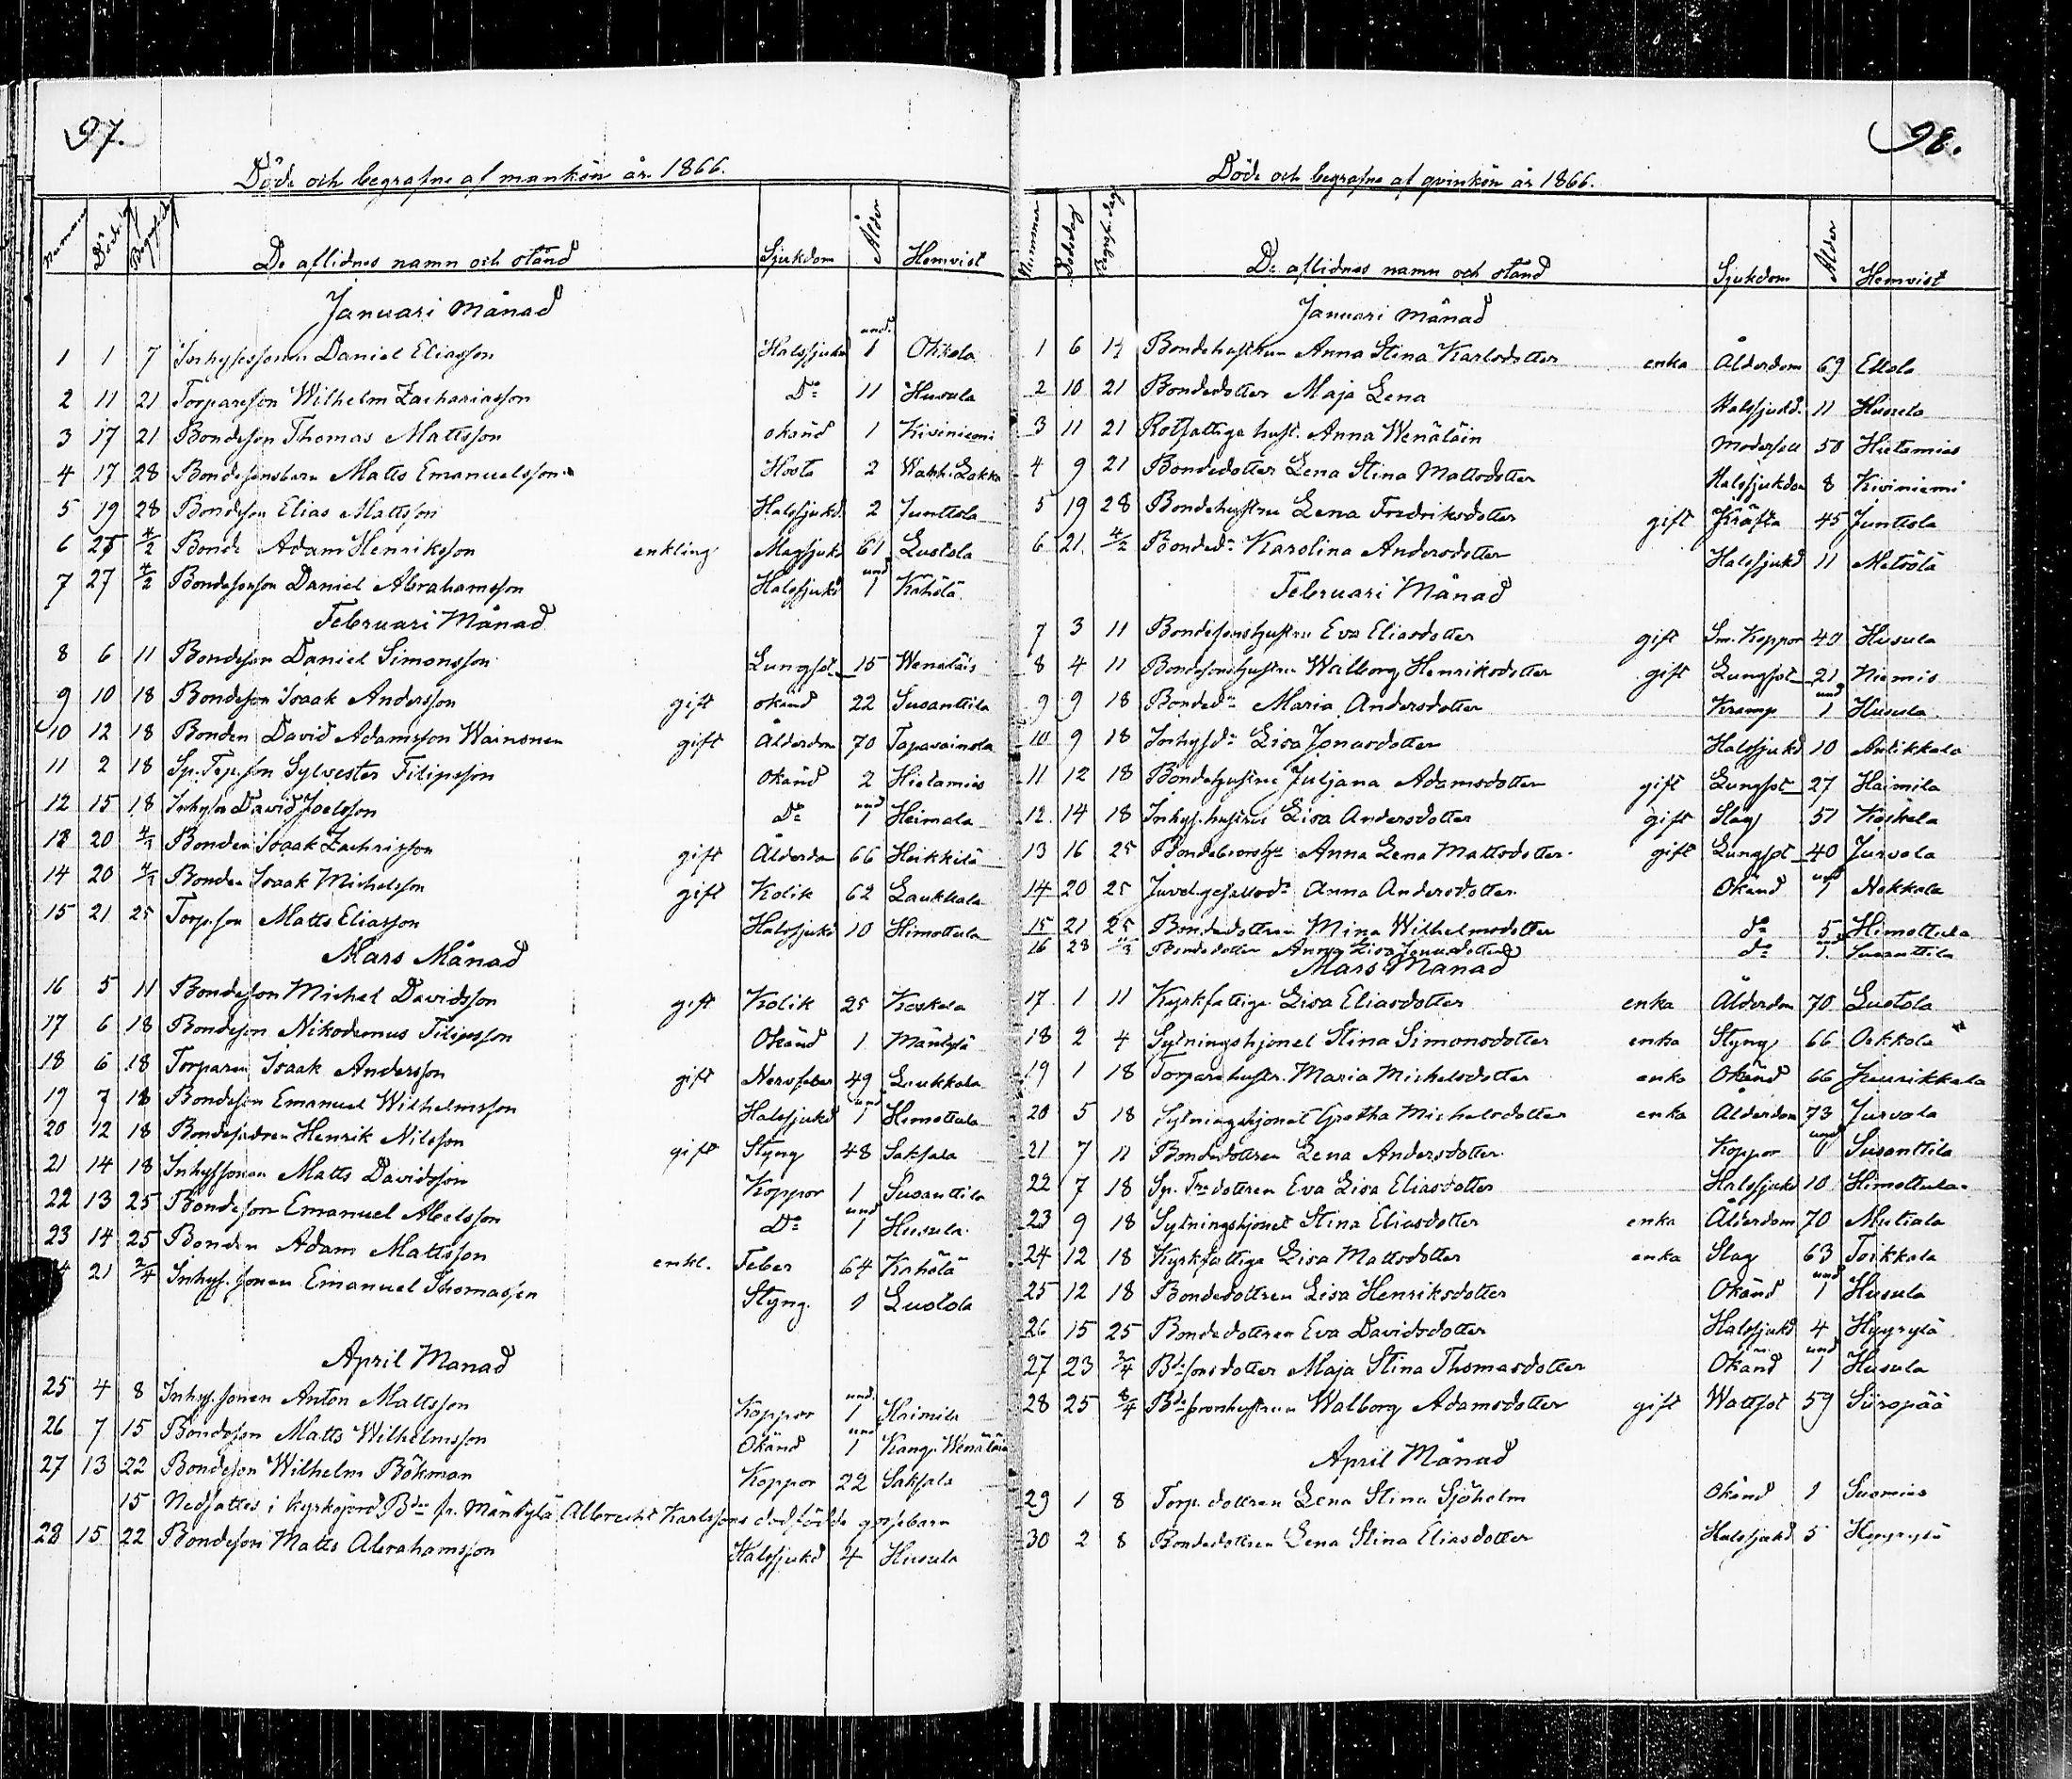 97.
Döde och begrafne af mankön år 1866.
Nummer Dödsdag Begrafn.dag De aflidnes namn och stånd Sjukdom Ålder Hemvist
Januari Månad
1 1 7 Inhysessonen Daniel Eliasson Halssjukd und. 1 Okkola
2 11 21 Torpareson Wilhelm Zachariasson Do 11 Husula
3 17 21 Bondeson Thomas Mattsson okänd 1 Kiviniemi
4 17 28 Bondesonsbarn Matts Emanuelsson Hosta 2
5 19 28 Bondeson Elias Mattsson Halssjukd. 2 Junttola
6 25 4/2 Bonde Adam Henriksson enkling Magsjukd 61 Lustola
7 27 4/2 Bondesonson Daniel Abrahamsson Halssjukd und 1 Kähölä
Februari Månad
8 6 11 Bondeson Daniel Simonsson Lungsot 15 Wenäläis
9 10 18 Bondeson Isaak Andersson gift okänd 22 Susanttila
10 12 18 Bonden David Adamsson Wainonen gift Ålderdom 70 Tapavainola
11 2 18 Sp.Torp.son Sylvester Filipsson Okänd 2 Hietamies
12 15 18 Inhyses David Joelsson Do und 1 Heimala
13 20 4/3 Bonden Isaak Zachrisson gift Ålderdom 66 Heikkilä
14 20 4/3 Bonden Isaak Michelsson gift Kolik 62 Laukkala
15 21 25 Torp.son Matts Eliasson Halssjukd 10 Himottula
Mars Månad
16 5 11 Bondeson Michel Davidsson gift Kolik 25 Keskala
17 6 18 Bondeson Nikodemus Filipsson Okänd 1 Mäntylä
18 6 18 Torparen Isaak Andersson gift Nervfeber 49 Laukkala
19 7 18 Bondeson Emanuel Wilhelmsson Halssjukd und 1 Himottula
20 12 18 Henrik Nilsson gift Styng 48 Saksala
21 14 18 Inhyssonen Matts Davidsson Koppor 1 Susanttila
22 13 25 Bondeson Emanuel Abelsson Do und 1 Husula
23 14 25 Bonden Adam Mattsson enkl. Feber 64 Kähölä
21 2/4 Inhys.sonen Emanuel Thomasson Styng. 1 Lustola
April Månad
25 4 8 Inhys.sonen Anton Mattsson Koppor und. 1 Haimila
26 7 15 Bondeson Matts Wilhelmsson Okänd und 1 Kang. Wenäläis
27 13 22 Bondeson Wilhelm Bökman Koppor 22 Saksala
15 Nedsattes i kyrkojord Bdn fr. Mäntylä Albrecht Karlssons dödfödde gossebarn
28 15 22 Bondeson Matts Abrahamsson Halssjukd 4 Husula
98.
Döde och begrafne af qvinkön år 1866.
Nummer Dödsdag Begrafn.dag De aflidnes namn och stånd Sjukdom Ålder Hemvist
Januari Månad
1 6 14 Bondehustrun Anna Stina Karlsdotter enka Ålderdom 69 Ellola
2 10 21 Bondedotter Maja Lena Halssjukd. 11 Husula
3 11 21 Rotfattige hust. Anna Wenäläin 50 Hietamies
4 9 21 Bondedotter Lena Stina Mattsdotter Halssjukdom 8 Kiviniemi
5 19 28 Bondehustru Lena Fredriksdotter gift Kräfta 45 Junttola
6 21 4/2 Bonded:r Karolina Andersdotter Halssjukd 11 Metsölä
Februari Månad
7 3 11 Bondesonshustru Eva Eliasdotter gift Sm. Koppor 40 Husula
8 4 11 Bondesonshustru Walborg Henriksdotter gift Lungsot 21 Niemis
9 9 18 Bonded:r Maria Andersdotter Kramp und 1 Husula
10 9 18 Inhysd:r Lisa Jonasdotter Halssjukd 10 Anlikkala
11 12 18 Bondehustru Juljana Adamsdotter gift Lungsot 27 Haimila
12 14 18 Inhys.hustru Lisa Andersdotter gift Slag 51 Keskala
13 16 25 Anna Lena Mattsdotter gift Lungsot 40 Jurvala
14 20 25 Anna Andersdotter Okänd und 1 Nokkala
15 21 25 Bondedottren Mina Wilhelmsdotter do 5 Himottula
16 28 4/3 Bondedotter Anna Lisa Jonasdotter do und 1 Susanttila
Mars Månad
17 1 11 Kyrkfattiga Lisa Eliasdotter enka Ålderdom 70 Lustola
18 2 4 Sytningshjonet Stina Simonsdotter enka Styng 66 Okkola
19 1 18 Torparehustr. Maria Michelsdotter enka Okänd 66 Heurikkala
20 5 18 Sytningshjonet Gretha Michelsdotter enka Ålderdom 73 Jurvala
21 7 11 Bondedottren Lena Andersdotter Koppor und 1 Susanttila
22 7 18 Sp. Trp dottren Eva Lisa Eliasdotter Halssjukd 10 Himottula
23 9 18 Sytningshjonet Stina Eliasdotter enka Ålderdom 70 Mutiala
24 12 18 Kyrkfattiga Lisa Mattsdotter enka Slag 63 Toikkala
25 12 18 Bondedottren Lisa Henriksdotter Okänd und 1 Husula
26 15 25 Bondedottren Eva Davidsdotter Halssjukd 4 Hyyrylä
27 23 2/4 Bd:sonsdotter Maja Stina Thomasdotter Okänd und 1 Husula
28 25 8/4 Walborg Adamsdotter gift Wattsot 59 Suropää
April Månad
29 1 8 Torp. dottren Lena Stina Sjöholm Okänd 1 Suomies
30 2 8 Bondedottren Lena Stina Eliasdotter Halssjukd 5 Hyyrylä